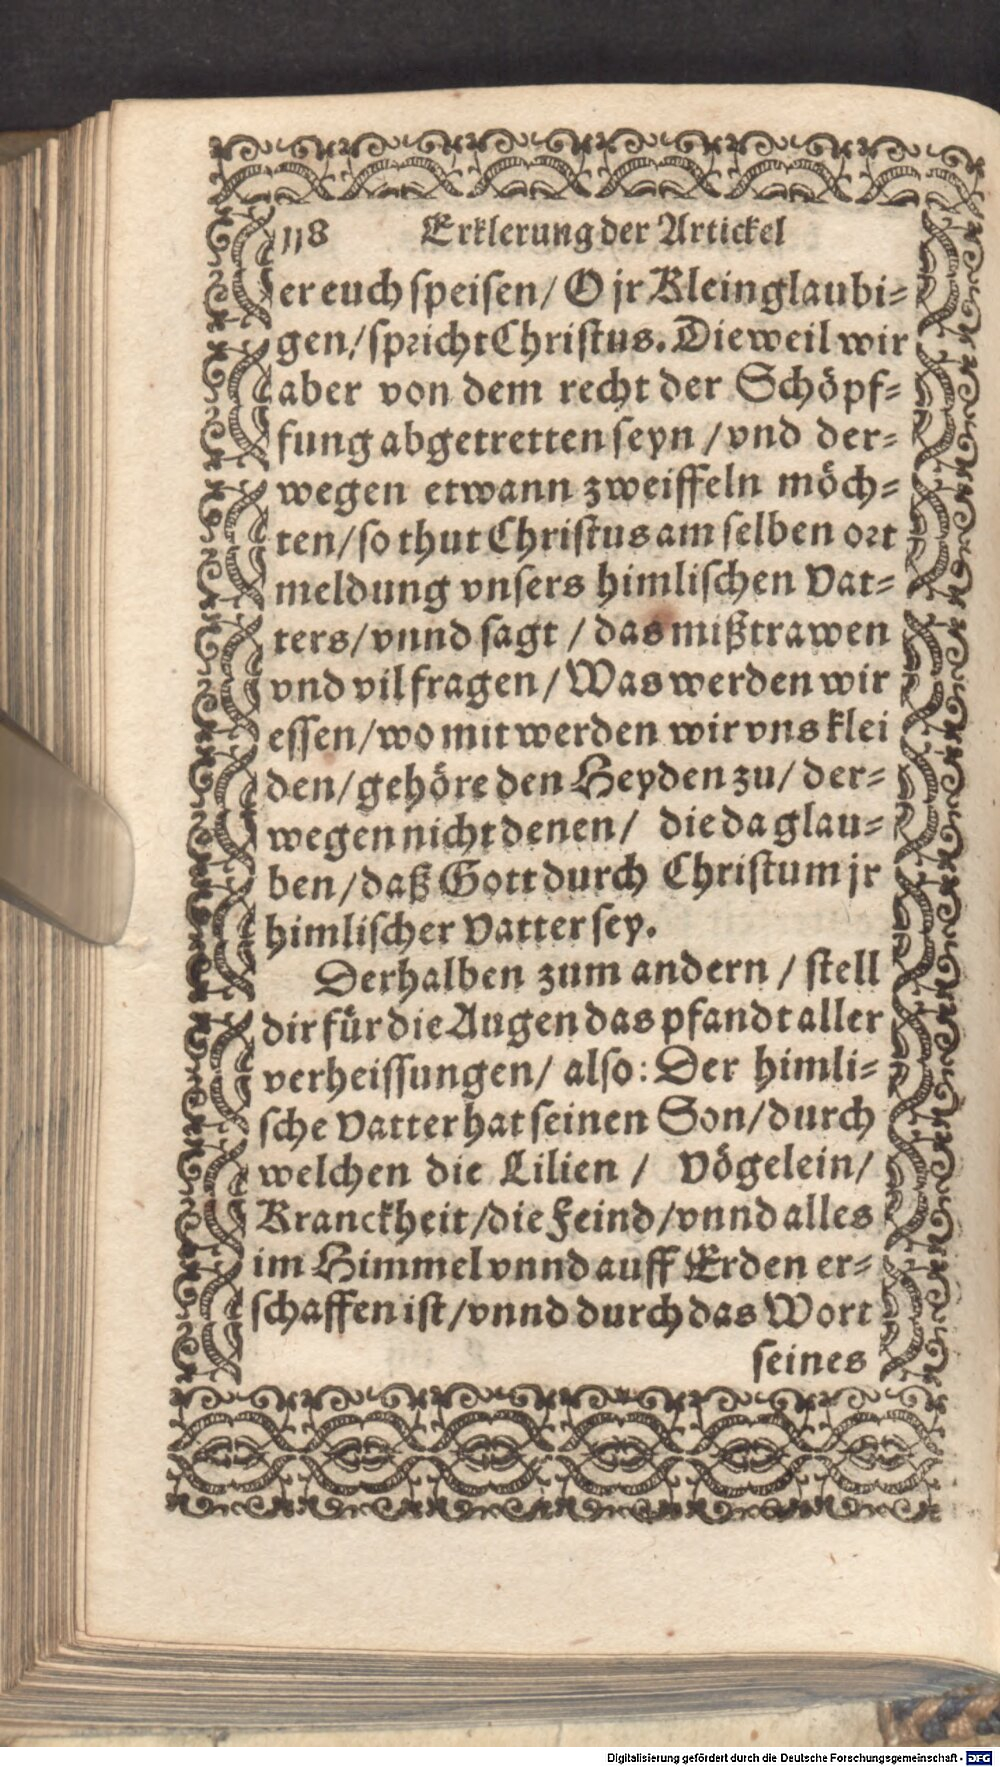 118 Erklerung der Artickel
er euch speisen/ O jr Kleinglaubi-
gen/ spricht Christus. Die weil wir
aber von dem recht der Schöpf-
fung abgetretten seyn / vnd der-
wegen etwann zweiffeln möch-
ten/ so thut Christus am selben ort
meldung vnsers himlischen Vat-
ters/ vnnd sagt / das mißtrawen
vnd vil fragen/ Was werden wir
essen/ wo mit werden wir vns klei
den/ gehöre den Heyden zu/ der-
wegen nicht denen/ die da glau-
ben/ daß Gott durch Christum jr
himlischer Vatter sey.
Derhalben zum andern / stell
dir für die Augen das pfandt aller
verheissungen/ also: Der himli-
sche Vatter hat seinen Son/ durch
welchen die Lilien / Vögelein/
Kranckheit/ die Feind/ vnnd alles
im Himmel vnnd auff Erden er-
schaffen ist/ vnnd durch das Wort
seines
Digitalisierung gefördert durch die Deutsche Forschungsgemeinschaft - DFG